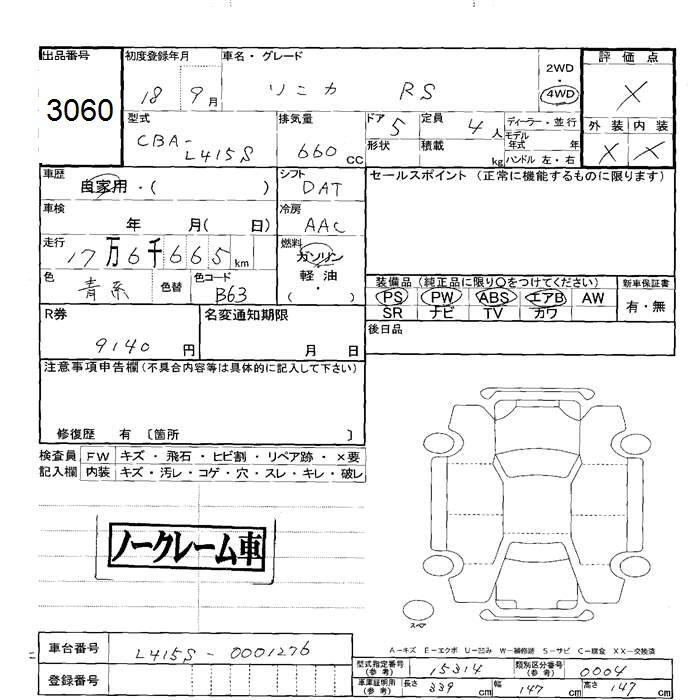 出品番号 初度登録年月 車名・グレード 評価点
3060 18 9月 ソニカ RS 2WD・4WD X
型式 排気量 ドア 定員 ディーラー・並行 外装 内装
CBA-L415S 660cc 5 4人 モデル年式 年 X X
形状 積載 kg ハンドル 左・右
車歴 シフト セールスポイント (正常に機能するものに限ります)
自家用・( ) DAT
車検 冷房
年 月( 日) AAC
走行 燃料
17万6千665km ガソリン
軽油
色 色替 色コード ・( )
青系 B63
装備品 (純正品に限り○をつけてください) 新車保証書
PS PW ABS エアB AW 有・無
SR ナビ TV カワ
R券 名変通知期限 後日品
9140円 月 日
注意事項申告欄 (不具合内容等は具体的に記入して下さい)
修復歴 有 〔箇所 〕
検査員 FW キズ・飛石・ヒビ割・リペア跡・×要
記入欄 内装 キズ・汚レ・コゲ・穴・スレ・キレ・破レ
ノークレーム車
スペア
A－キズ E－エクボ U－凹み W－補修跡 S－サビ C－腐食 XX－交換済
車台番号 L415S-0001276
型式指定番号(参考) 15314 類別区分番号(参考) 0004
登録番号
車庫証明用(参考) 長さ 339cm 幅 147cm 高さ 147cm